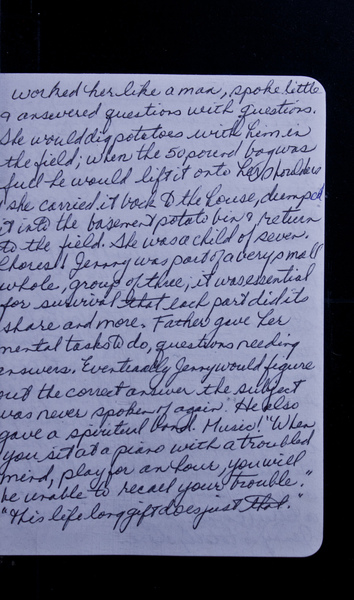 worked her like a man, spoke little
& answered questions with questions.
She would dig potatoes with him in
the field; when the 50 pound bag was
full he would lift it onto her shoulders
she carried it back to the house, dumped
it into the basement potato bin & return
to the field. She was a child of seven.
Chores!! Jenny was part of a very small
whole, group of three; it was essential
for survival that each part did its
share and more. Father gave her
mental tasks to do, questions needing
answers. Eventually Jenny would figure
out the correct answer the subject
was never spoken of again. He also
gave a spiritual bond. Music! "When
you sit at a piano with a troubled
mind, play for an hour, you will
be unable to recall your trouble."
"This life long gift does just that."